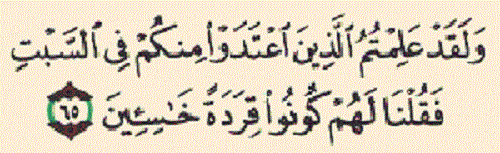 وَلَقَدْ عَلِمْتُمُ ٱلَّذِينَ ٱعْتَدَوْا۟ مِنكُمْ فِى ٱلسَّبْتِ
فَقُلْنَا لَهُمْ كُونُوا۟ قِرَدَةً خَـٰسِـِٔينَ ٦٥